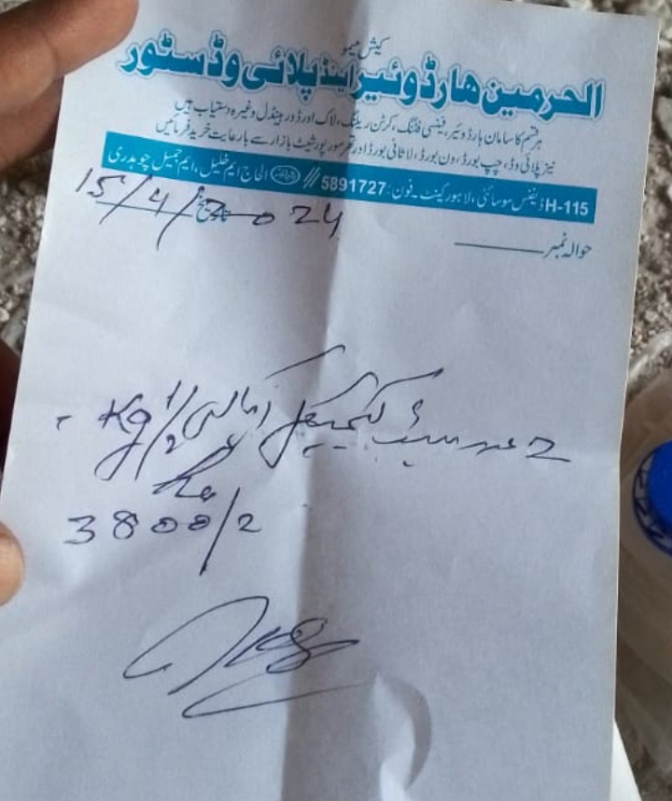 کیش میمو
الحرمین ھارڈوئیر اینڈ پلائی وڈ سٹور
ہر قسم کا سامان ہارڈوئیر، فینسی فٹنگ، کرٹن ریلنگ، لاک اور ڈور ہینڈل وغیرہ دستیاب ہیں
نیز پلائی وڈ، چپ بورڈ، ون بورڈ، لاثانی بورڈ اور تھرمورپور شیٹ بازار سے بارعایت خرید فرمائیں
H-115 ڈیفنس سوسائٹی، لاہور کینٹ۔ فون: 5891727 // الحاج ایم خلیل، ایم جمیل چوہدری
حوالہ نمبر
تاریخ 15/4/2024
2 عدد سیٹ کیمیکل 1/2 Kg
Rs
3800/2